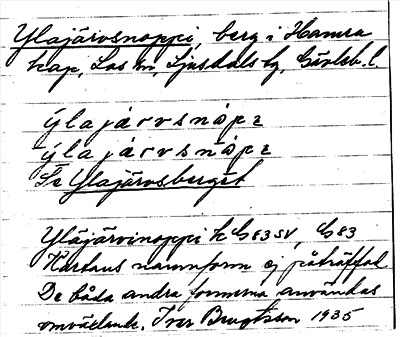 Ylajärvsnoppi, berg i Hamra
kap, Los sn, Ljusdals tg, Gävleb. l.
ýlajárvsnòpɛ
ýlajárvsnòpɛ
Se Ylajärvsberget
Yläjärvinoppi k G83SV, G83
Kartans namnform ej påträffad
De båda andra formerna användas
omväxlande. Ivar Bengtsson 1935